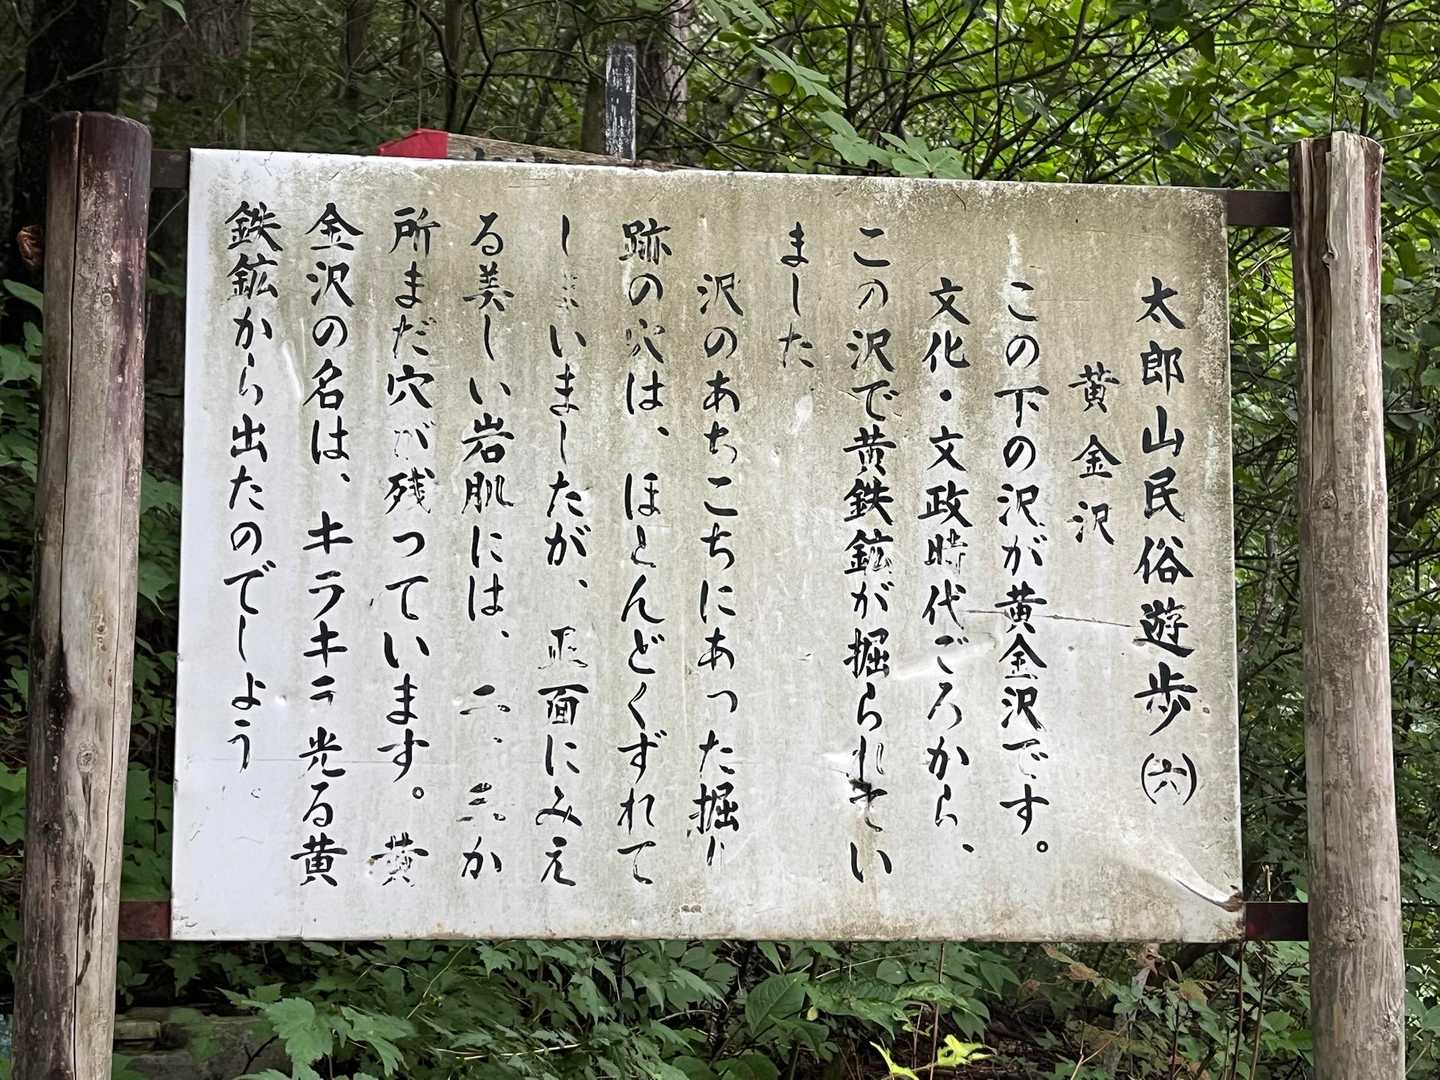 太郎山民俗遊歩(六)
黄金沢
この下の沢が黄金沢です。
文化・文政時代ごろから、
この沢で黄鉄鉱が掘られてい
ました
沢のあちこちにあった掘り
跡の穴は、ほとんどくずれて
しまいましたが、正面にみえ
る美しい岩肌には、二、三か
所まだ穴が残っています。黄
金沢の名は、キラキラ光る黄
鉄鉱から出たのでしょう。